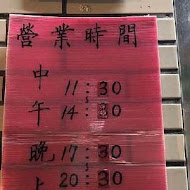 營業時間
中 11:30
午 14:30
晚 17:30
上 20:30